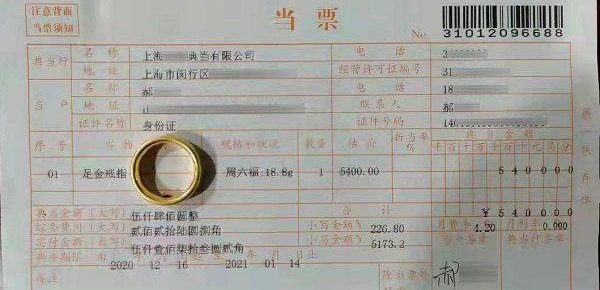 注意背面
当票须知
当票
No. 31012096688
典当行 名称 上海 典当有限公司 电话 3
地址 上海市闵行区 经营许可证编号 31
当户 名称 郝 电话 18
地址 联系人 郝
证件名称 身份证 证件号码 140
序号 当物 规格和状况 数量 估价 折当率% 典当金额
千百十万千百十元角分
01 足金戒指 周六福:18.8g 1 5400.00 540000
合计 ¥540000
典当金额(大写) 伍仟肆佰圆整
综合费用(大写) 贰佰贰拾陆圆捌角 小写金额¥ 226.80 月费率% 4.20 月利率% 0.000
实付金额(大写) 伍仟壹佰柒拾叁圆贰角 小写金额¥ 5173.2
典当期限 由 2020 12 16 2021 01 14
备注
郝
第一联
存根